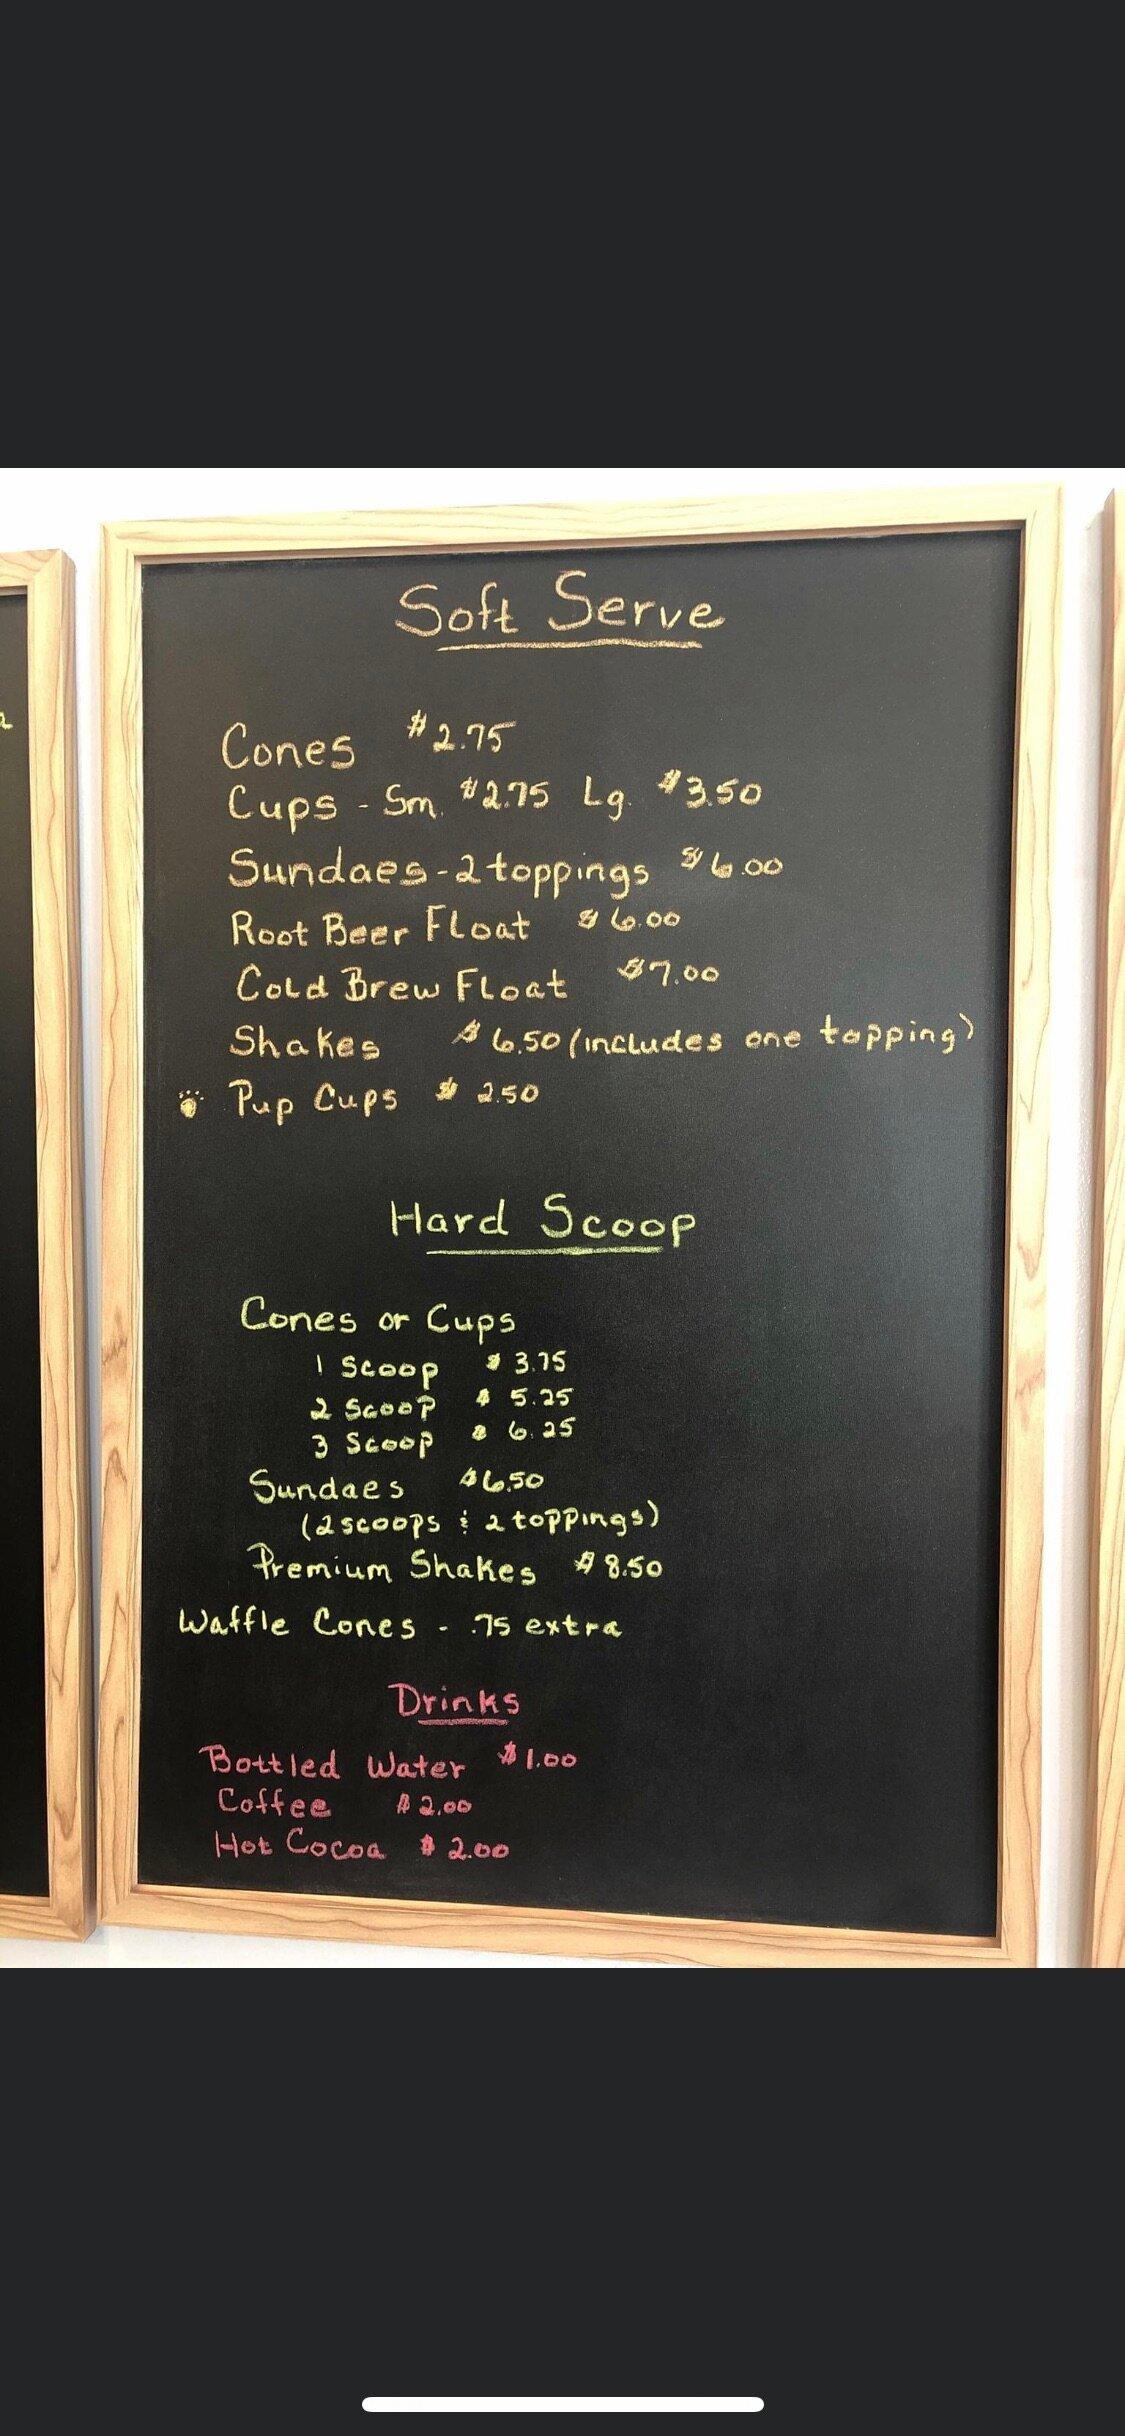 Soft Serve
Cones $2.75
Cups - Sm. $2.75 Lg. $3.50
Sundaes - 2 toppings $6.00
Root Beer Float $6.00
Cold Brew Float $7.00
Shakes $6.50 (includes one topping)
Pup Cups $2.50
Hard Scoop
Cones or Cups
1 Scoop $3.75
2 Scoop $5.25
3 Scoop $6.25
Sundaes $6.50
(2 scoops & 2 toppings)
Premium Shakes $8.50
Waffle Cones - .75 extra
Drinks
Bottled Water $1.00
Coffee $2.00
Hot Cocoa $2.00